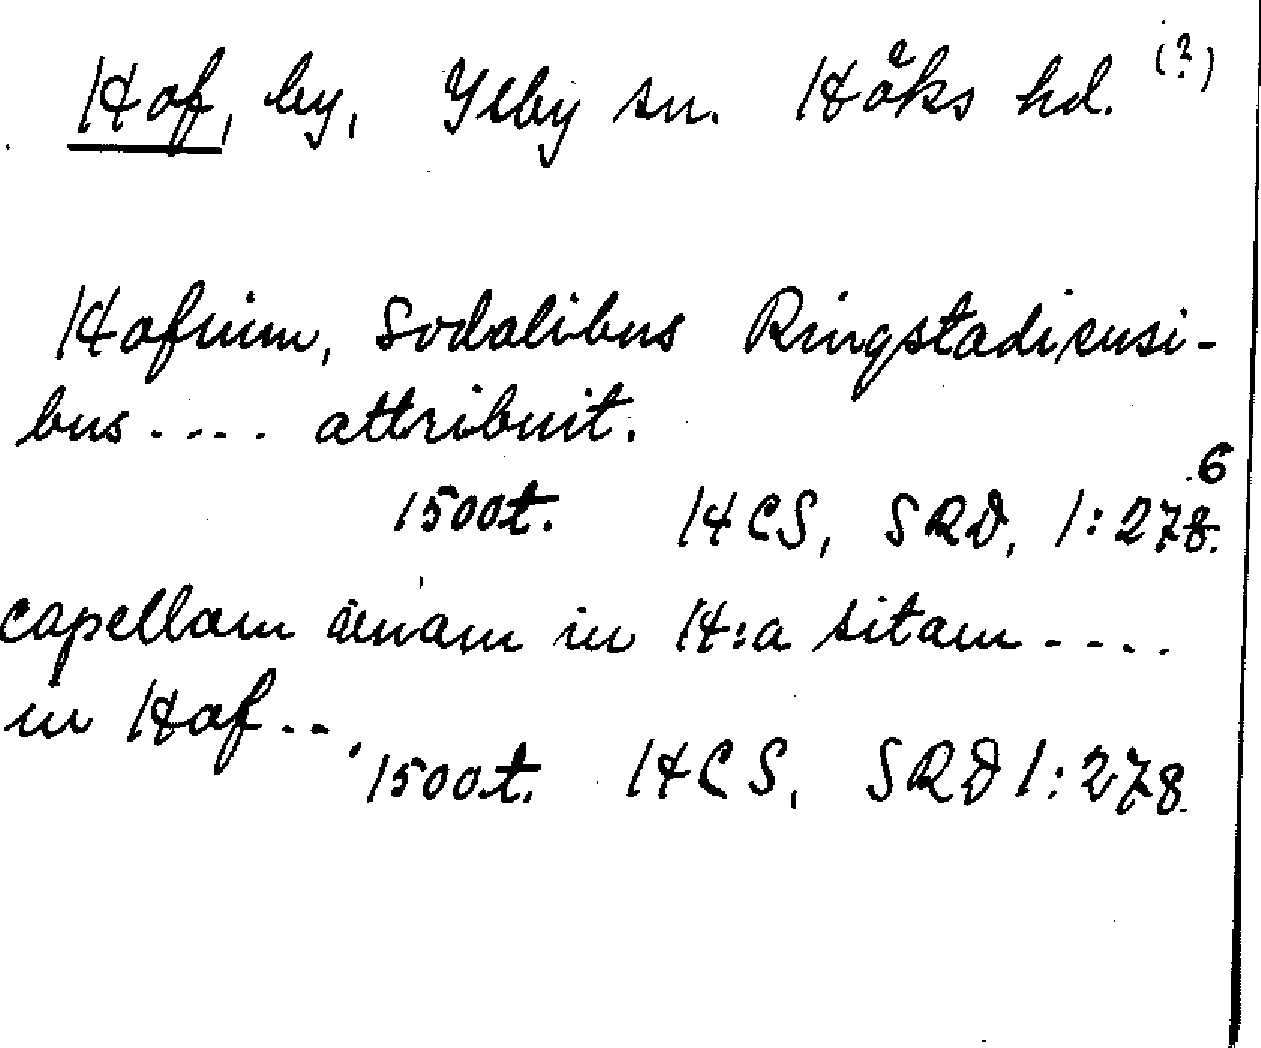 Hof, by, Ysby sn. Höks hd. (?)
Hofnim, Sodalibus Ringstadiensi-
bus .... attribuit.
6
1500t. HCS, SRD, 1:278.
capellam unam in H:a sitam ....
in Hof ...
1500t. HCS, SRD 1:278